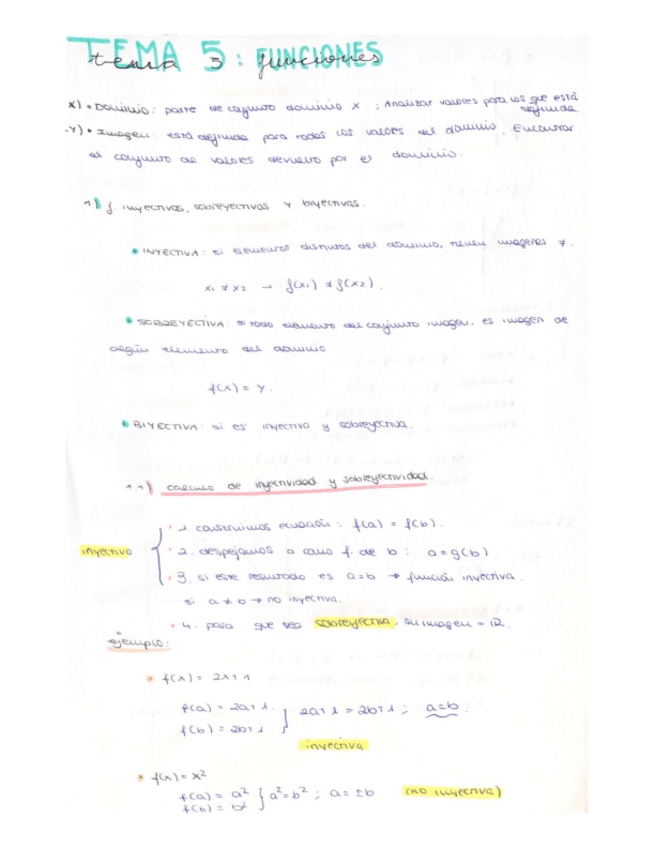 TEMA 5: FUNCIONES
tema 3 funciones
X) • DOMINIO: parte de conjunto dominio X ; Analizar valores para los que está definida
Y) • IMAGEN: está definida para todos los valores del dominio. Encontrar
el conjunto de valores devuelto por el dominio.
1) f. inyectivas, sobreyectivas y biyectivas.
• INYECTIVA: si elementos distintos del dominio, tienen imagenes ≠.
x₁ ≠ x₂ → f(x₁) ≠ f(x₂).
• SOBREYECTIVA: si todo elemento del conjunto imagen, es imagen de
algún elemento del dominio
f(x) = Y.
• BIYECTIVA: si es inyectiva y sobreyectiva.
1.1) calculo de inyectividad y sobreyectividad.
• 1. construimos ecuación: f(a) = f(b).
inyectiva • 2. despejamos a como f. de b: a=g(b)
• 3. si este resultado es a=b → función inyectiva.
si a ≠ b → no inyectiva.
• 4. para que sea sobreyectiva, su imagen = ℝ.
ejemplo:
• f(x) = 2x+1
f(a) = 2a+1.
f(b) = 2b+1 } 2a+1 = 2b+1 ; a=b.
inyectiva
• f(x) = x²
f(a) = a² } a²=b² ; a = ±b (no inyectiva)
f(b) = b²